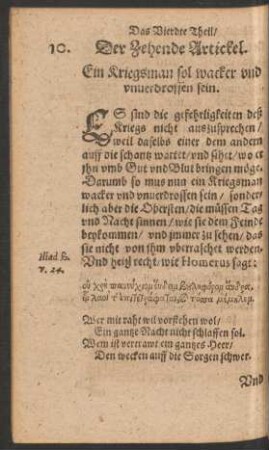 Das Vierdte Theil/
10. Der Zehende Artickel.
Ein Kriegsman sol wacker vnd
vnuerdrossen sein.
ES sind die gefehrligkeiten deß
Kriegs nicht auszusprechen/
weil daselbs einer dem andern
auff die schantz wartet/ vnd sihet/ wo er
jhn vmb Gut vnd Blut bringen möge.
Darumb so mus nun ein Kriegsman
wacker vnd vnuerdrossen sein/ sonder
lich aber die Obersten/ die müssen Tag
vnd Nacht sinnen/ wie sie dem Feinde
beykommen/ vnd jmmer zu sehen/ das
sie nicht von jhm vberraschet werden.
Iliad β.
v. 24.
Vnd heist recht/ wie Homerus sagt:
Wer mit raht wil vorstehen wol/
Ein gantze Nacht nicht schlaffen sol.
Wem ist vertrawt ein gantzes Heer/
Den wecken auff die Sorgen schwer.
Vnd